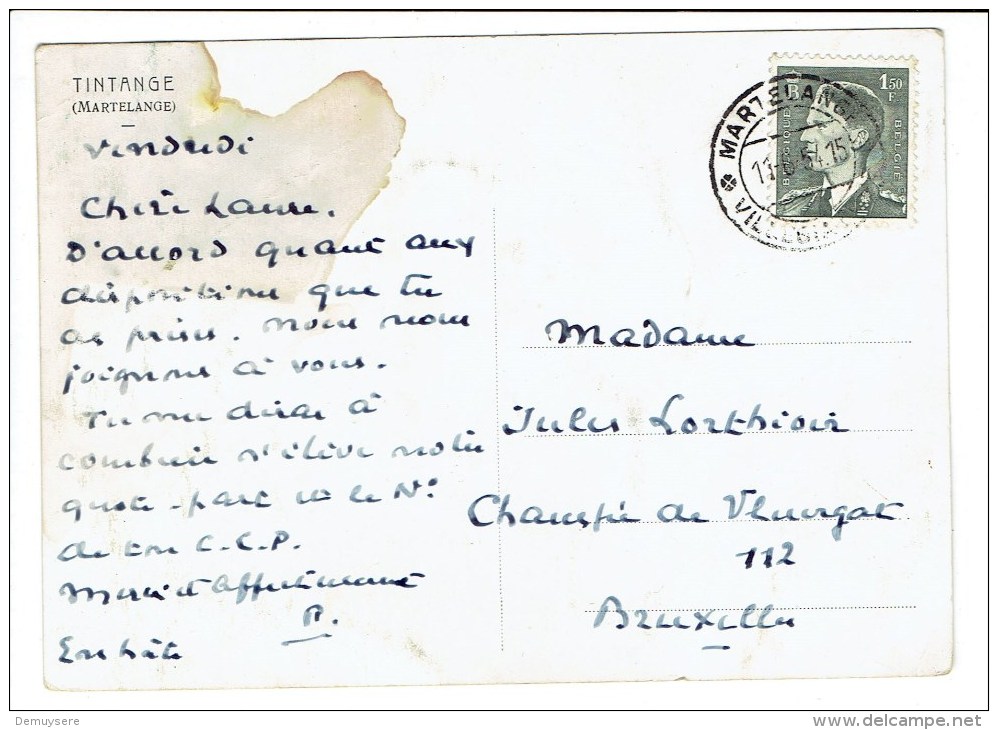 TINTANGE
(MARTELANGE)
Vendredi
Chère Laure.
D'accord quant aux
dispositions que tu
as prises. Nous nous
joignons à vous.
Tu me diras à
combien s'élève notre
quote-part et le N°
de ton C.C.P.
Merci et affectueusement
P.
En hâte
BELGIQUE
BELGIË
1.50
F
MARTELANGE
VILLEGIA
Madame
Jules Lorthioir
Chaussée de Vleurgat
112
Bruxelles
Demuysere
delcampe.net